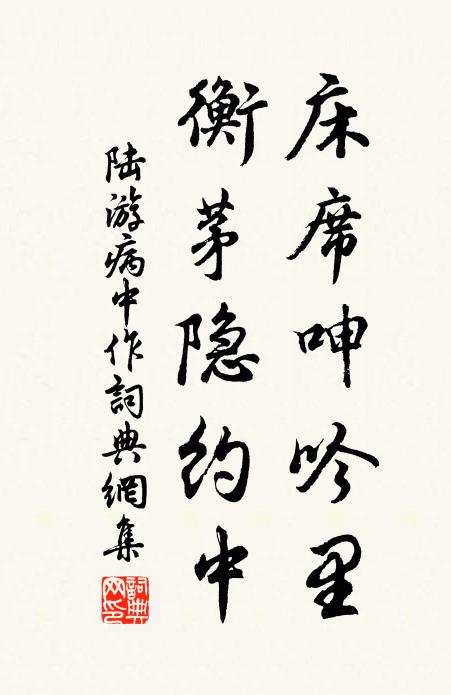 床席呻吟里
衡茅隐约中
陆游病中作詞典網集
詞典网印